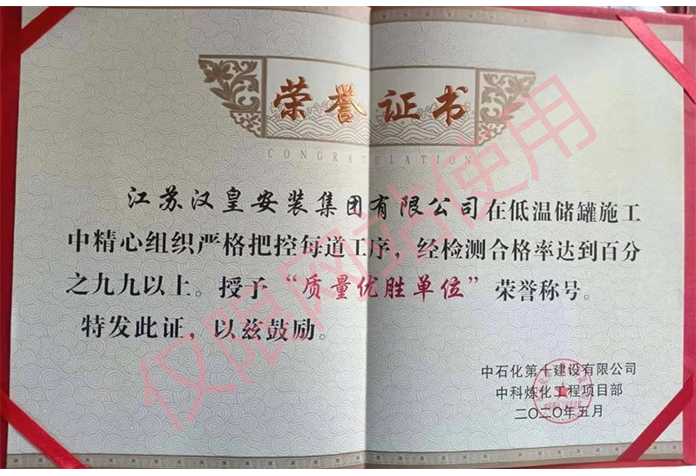 荣誉证书
CONGRATULATION
江苏汉皇安装集团有限公司在低温储罐施工
中精心组织严格把控每道工序，经检测合格率达到百分
之九九以上。授予“质量优胜单位”荣誉称号。
特发此证，以兹鼓励。
中石化第十建设有限公司
中科炼化工程项目部
二〇二〇年五月
仅限网站使用